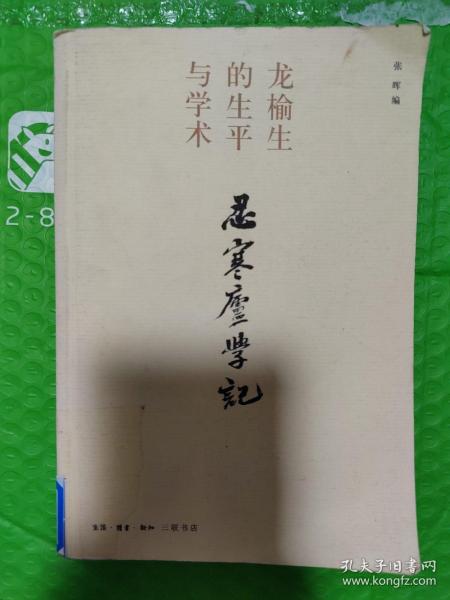 张晖编
龙榆生
的生平
与学术
忍寒廬學記
生活·讀書·新知 三联书店
2-8
孔夫子旧书网
www.kongfz.com